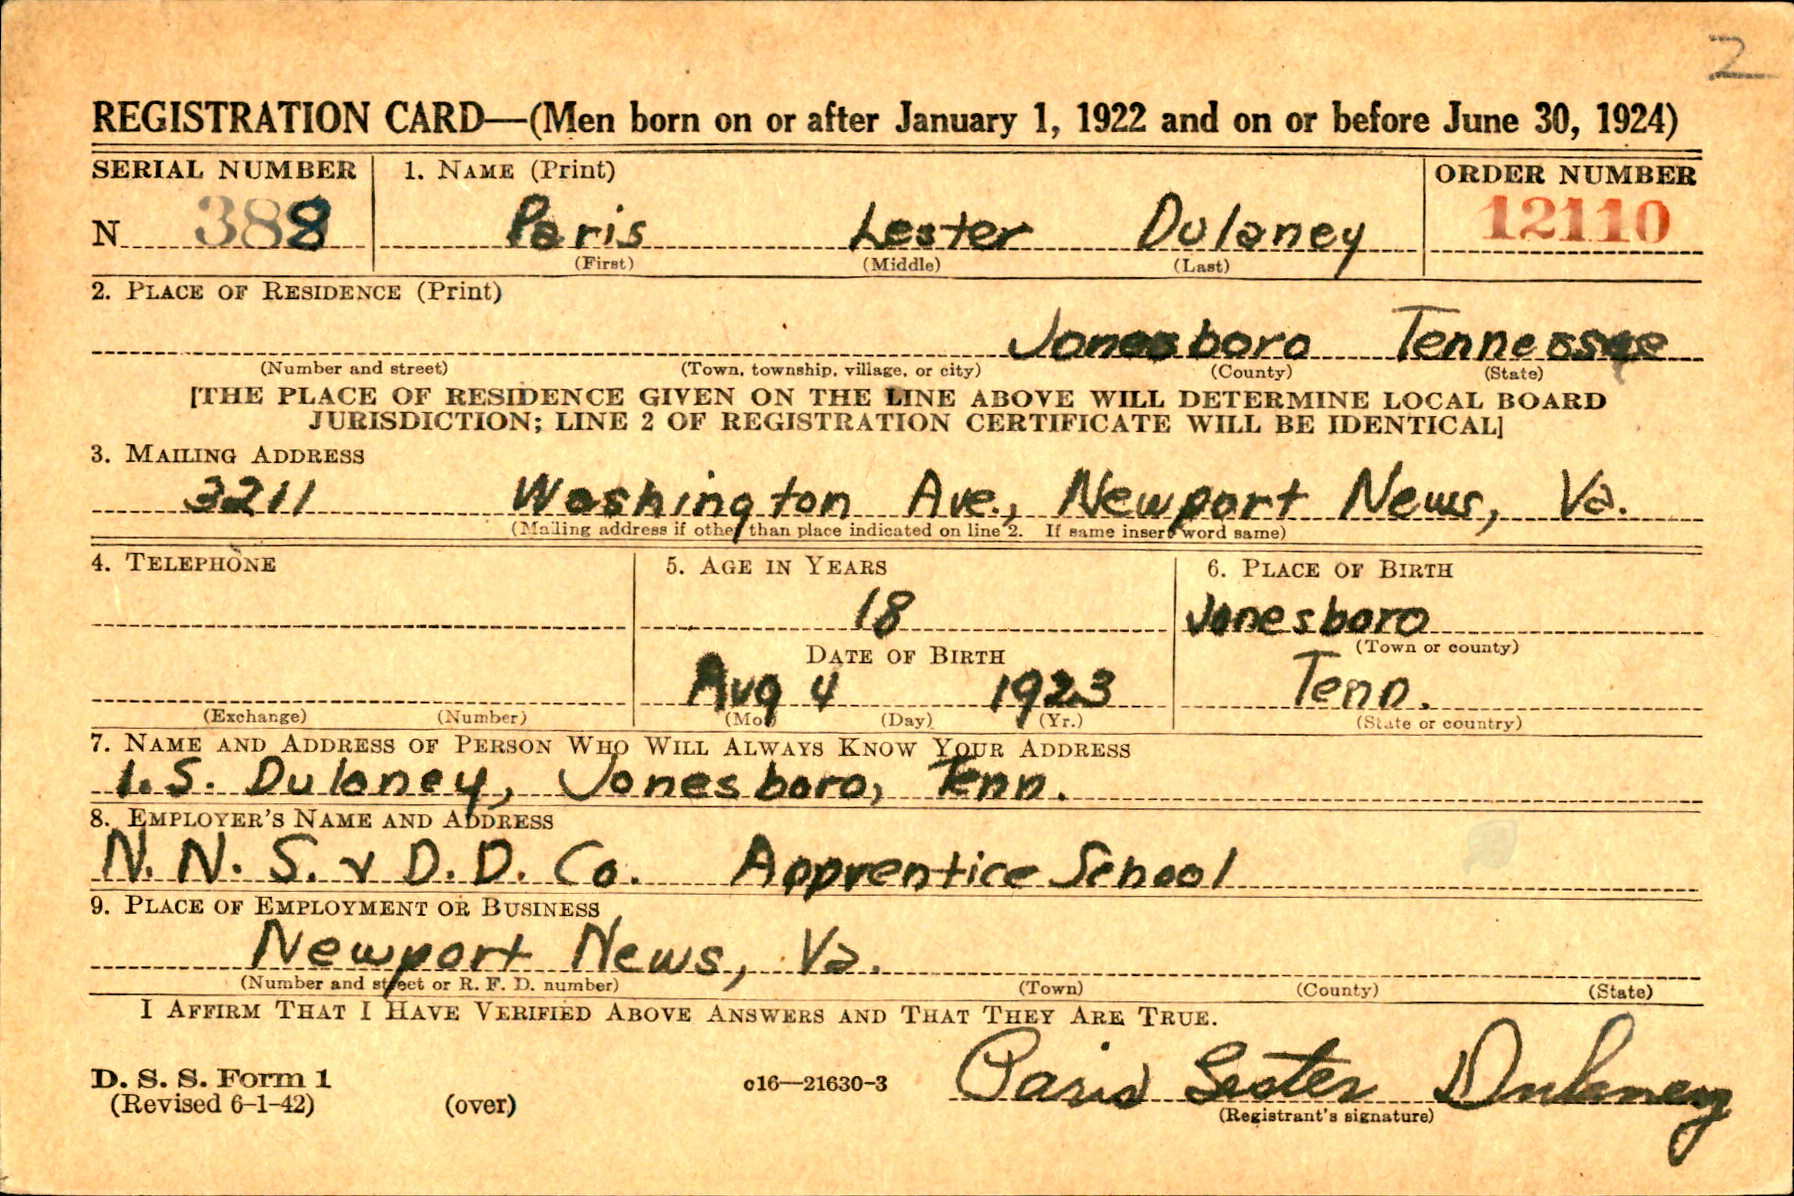 2
REGISTRATION CARD—(Men born on or after January 1, 1922 and on or before June 30, 1924)
SERIAL NUMBER 1. NAME (Print) ORDER NUMBER
N 388 Paris Lester Dulaney 12110
(First) (Middle) (Last)
2. PLACE OF RESIDENCE (Print)
Jonesboro Tennessee
(Number and street) (Town, township, village, or city) (County) (State)
[THE PLACE OF RESIDENCE GIVEN ON THE LINE ABOVE WILL DETERMINE LOCAL BOARD
JURISDICTION; LINE 2 OF REGISTRATION CERTIFICATE WILL BE IDENTICAL]
3. MAILING ADDRESS
3211 Washington Ave., Newport News, Va.
(Mailing address if other than place indicated on line 2. If same insert word same)
4. TELEPHONE 5. AGE IN YEARS 6. PLACE OF BIRTH
18 Jonesboro
DATE OF BIRTH (Town or county)
Aug 4 1923 Tenn.
(Exchange) (Number) (Mo.) (Day) (Yr.) (State or country)
7. NAME AND ADDRESS OF PERSON WHO WILL ALWAYS KNOW YOUR ADDRESS
I.S. Dulaney, Jonesboro, Tenn.
8. EMPLOYER'S NAME AND ADDRESS
N. N. S. & D. D. Co. Apprentice School
9. PLACE OF EMPLOYMENT OR BUSINESS
Newport News, Va.
(Number and street or R. F. D. number) (Town) (County) (State)
I AFFIRM THAT I HAVE VERIFIED ABOVE ANSWERS AND THAT THEY ARE TRUE.
D. S. S. Form 1 c16—21630-3 Paris Lester Dulaney
(Revised 6-1-42) (over) (Registrant's signature)